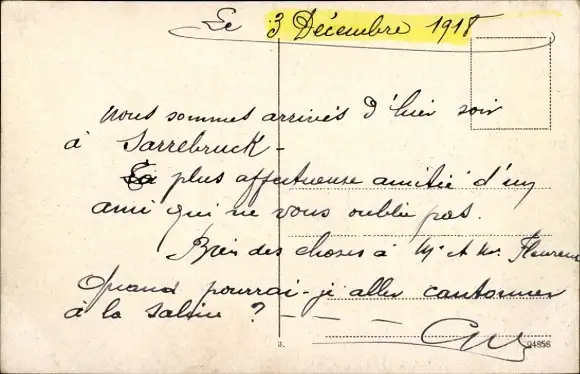 Le 3 Décembre 1918
Nous sommes arrivés d'hier soir
à Sarrebruck -
La plus affectueuse amitié d'un
ami qui ne vous oublie pas.
Bien des choses à Mr et Me
Quand pourrai-je aller cantonner
à la Saline ? - - -
3.
04856